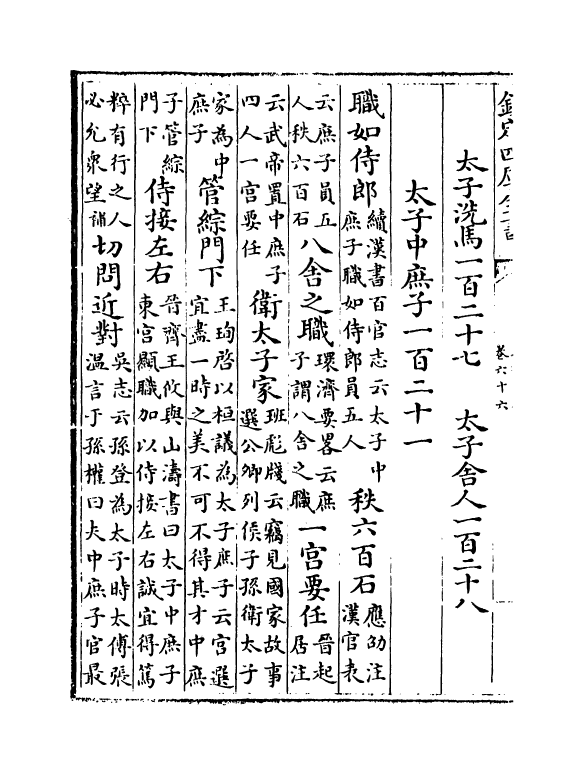 欽定四庫全書
卷六十六
太子洗馬一百二十七 太子舍人一百二十八
太子中庶子一百二十一
職如侍郎 續漢書百官志云太子中庶子職如侍郎員五人 秩六百石 應劭注漢官表
云庶子員五人秩六百石 八舍之職 環濟要畧云庶子謂八舍之職 一宫要任 晉起居注
云武帝置中庶子四人一宫要任 衛太子家 班彪牋云竊見國家故事選公卿列侯子孫衛太子
家為中庶子 管綜門下 王珣啓以桓議為太子庶子云宫選宜盡一時之美不可不得其才中庶
子管綜門下 侍接左右 晉齊王攸與山濤書曰太子中庶子東宫顯職加以侍接左右誠宜得篤
粹有行之人必允衆望補 切問近對 吳志云孫登為太子時太傅張温言于孫權曰夫中庶子官最